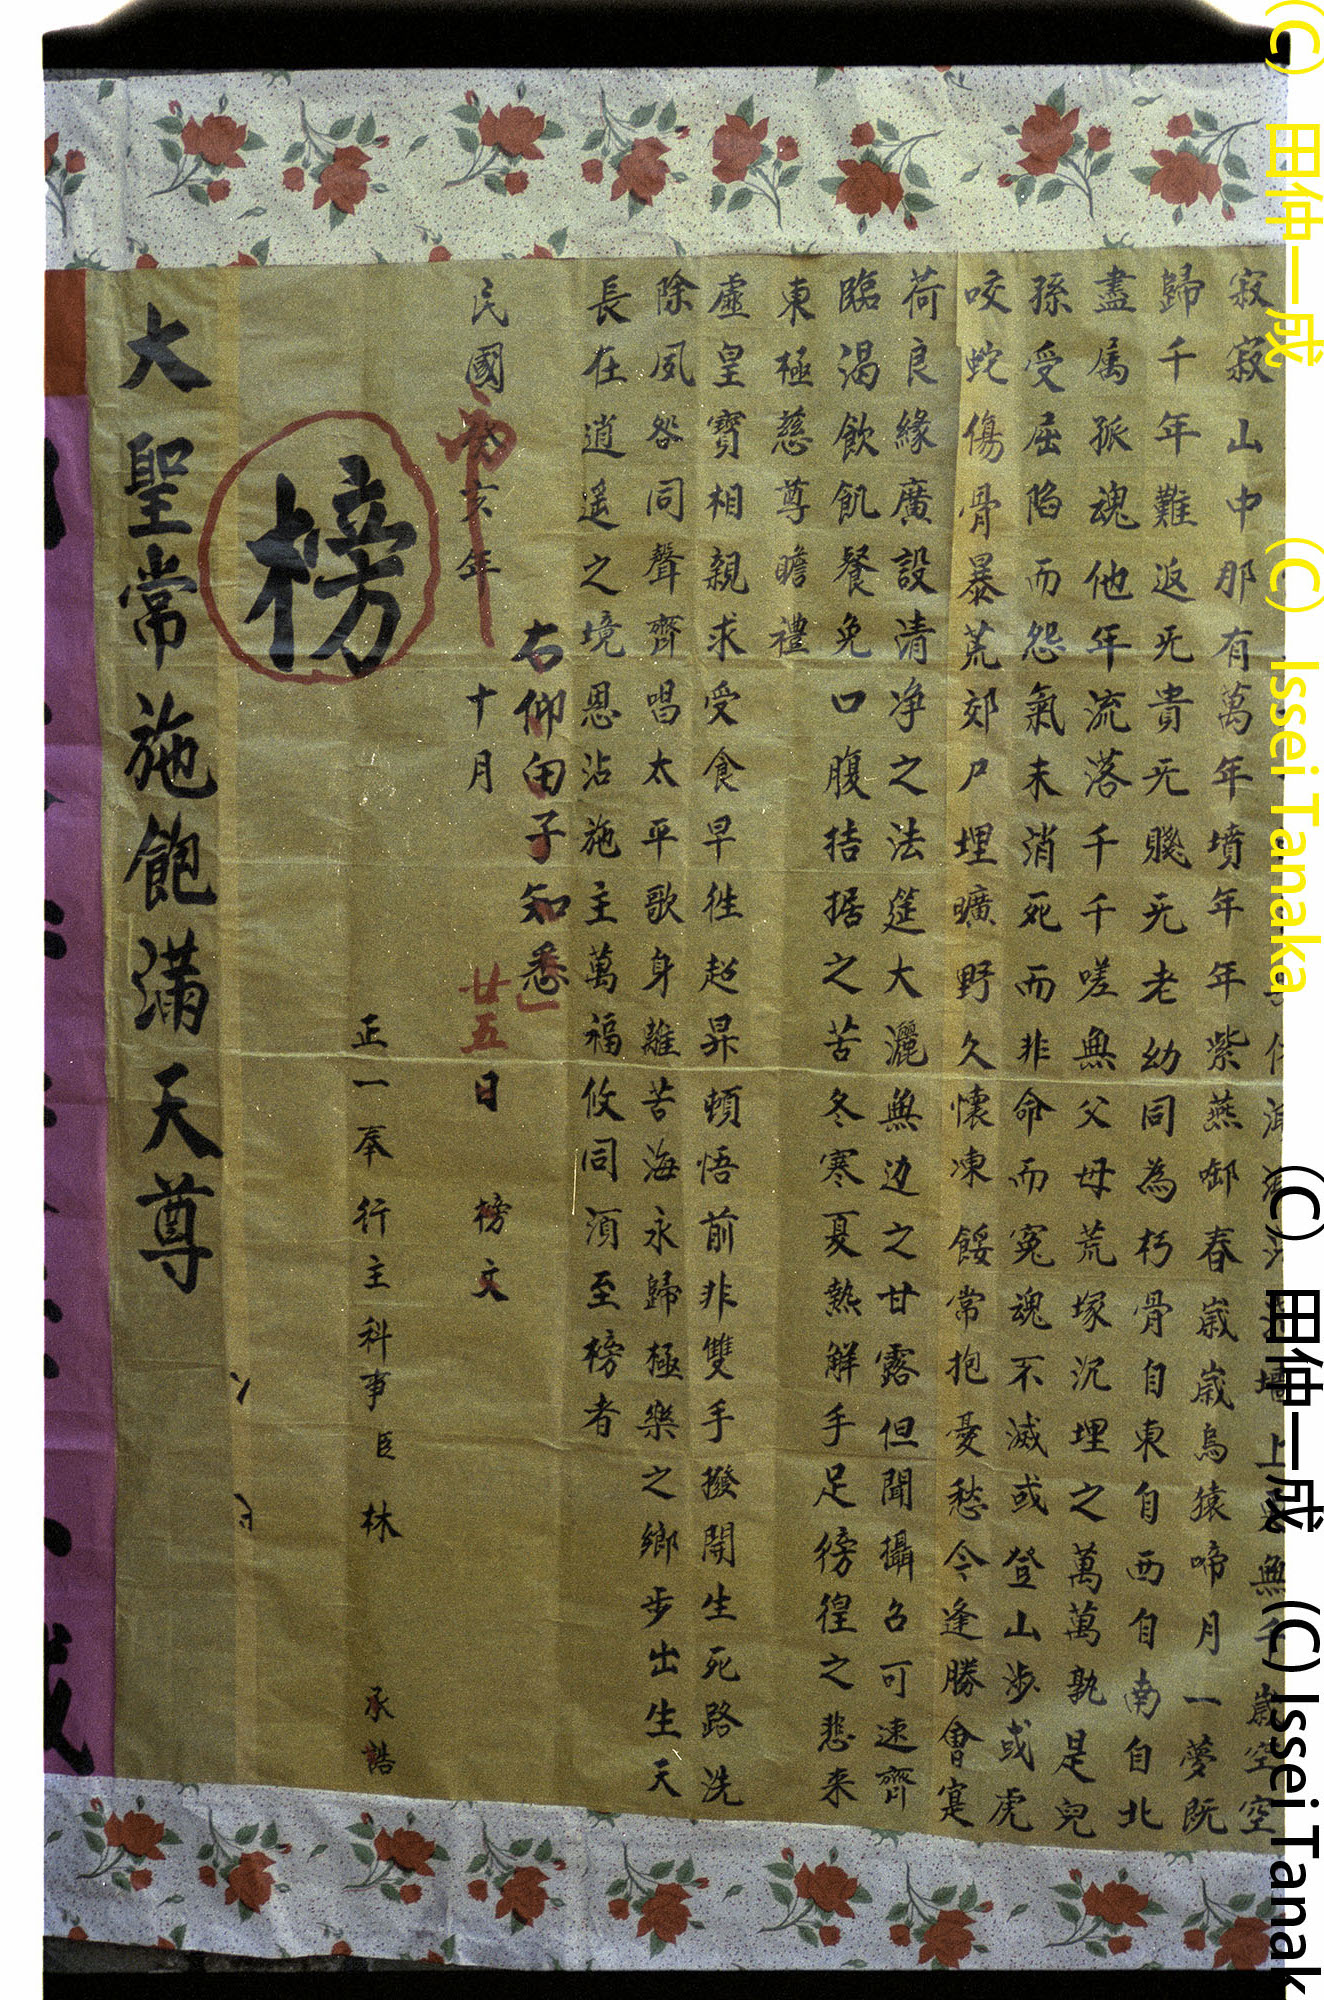 寂寂山中那有萬年墳年年紫燕啣春嵗嵗烏猿啼月一夢既
歸千年難返旡貴旡賤旡老幼同為朽骨自東自西自南自北
盡属孤魂他年流落千千嗟無父母荒塚沉埋之萬萬孰是兒
孫受屈陷而怨氣未消死而非命而冤魂不滅或登山涉或虎
咬蛇傷骨暴荒郊尸埋曠野久懷凍餒常抱憂愁今逢勝會寔
荷良緣廣設清净之法筵大灑無边之甘露但聞攝召可速齊
臨渴飲飢餐免口腹拮据之苦冬寒夏熱解手足徬徨之悲来
東極慈尊瞻禮
虛皇寶相親求受食早徃超昇頓悟前非雙手撥開生死路洗
除夙咎同聲齊唱太平歌身離苦海永歸極樂之鄉步出生天
長在逍遥之境恩沾施主萬福攸同湏至榜者
右仰由子知悉
民國癸亥年十月廿五日榜文
正一奉行主科事臣林承誥
榜
大聖常施飽滿天尊
(C) 田仲一成 (C) Issei Tanaka
(C) 田仲一成 (C) Issei Tanak